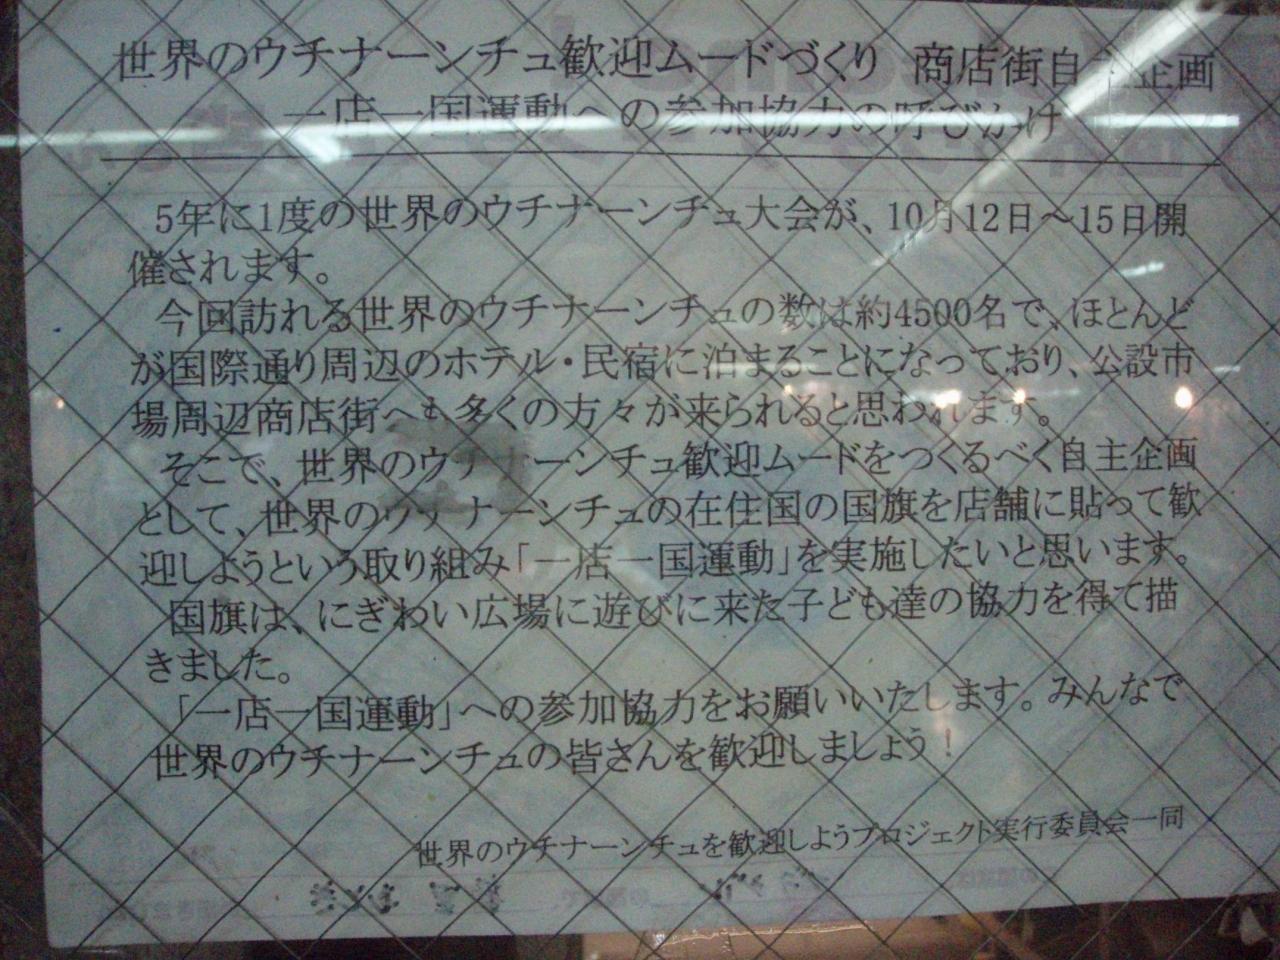 世界のウチナーンチュ歓迎ムードづくり 商店街自主企画
一店一国運動への参加協力の呼びかけ
5年に1度の世界のウチナーンチュ大会が、10月12日～15日開
催されます。
今回訪れる世界のウチナーンチュの数は約4500名で、ほとんど
が国際通り周辺のホテル・民宿に泊まることになっており、公設市
場周辺商店街へも多くの方々が来られると思われます。
そこで、世界のウチナーンチュ歓迎ムードをつくるべく自主企画
として、世界のウチナーンチュの在住国の国旗を店舗に貼って歓
迎しようという取り組み「一店一国運動」を実施したいと思います。
国旗は、にぎわい広場に遊びに来た子ども達の協力を得て描
きました。
「一店一国運動」への参加協力をお願いいたします。みんなで
世界のウチナーンチュの皆さんを歓迎しましょう！
世界のウチナーンチュを歓迎しようプロジェクト実行委員会一同